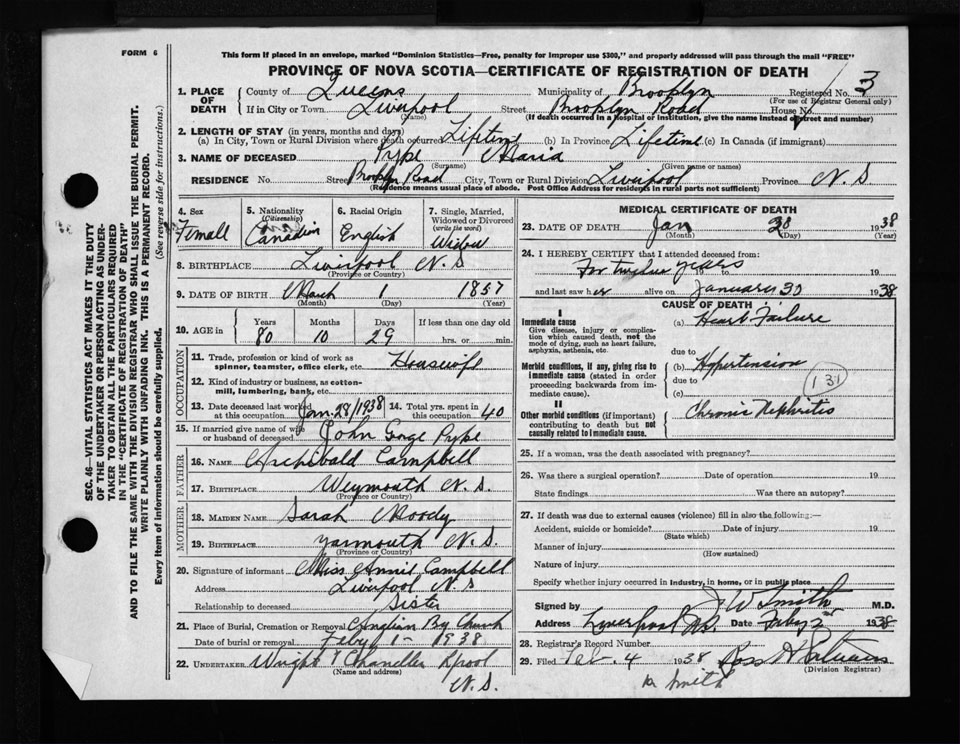 FORM 6
This form if placed in an envelope, marked "Dominion Statistics—Free, penalty for improper use $300," and properly addressed will pass through the mail "FREE"
PROVINCE OF NOVA SCOTIA—CERTIFICATE OF REGISTRATION OF DEATH
1. PLACE OF DEATH County of Queens Municipality of Brooklyn Registered No. 3
(For use of Registrar General only)
If in City or Town Liverpool Street Brooklyn Road House No.
(Name) (If death occurred in a hospital or institution, give the name instead of street and number)
2. LENGTH OF STAY (in years, months and days)
(a) In City, Town or Rural Division where death occurred Lifetime (b) In Province Lifetime (c) In Canada (if immigrant)
3. NAME OF DECEASED Pype Maria
(Surname) (Given name or names)
RESIDENCE No. Street Brooklyn Road City, Town or Rural Division Liverpool Province N.S.
(Residence means usual place of abode. Post Office Address for residents in rural parts not sufficient)
4. Sex Female
5. Nationality (Citizenship) Canadian
6. Racial Origin English
7. Single, Married, Widowed or Divorced (write the word) Widow
8. BIRTHPLACE Liverpool N S
(Province or Country)
9. DATE OF BIRTH March 1 1857
(Month) (Day) (Year)
10. AGE in Years 80 Months 10 Days 29 If less than one day old hrs. or min.
OCCUPATION
11. Trade, profession or kind of work as spinner, teamster, office clerk, etc. Housewife
12. Kind of industry or business, as cotton-mill, lumbering, bank, etc.
13. Date deceased last worked at this occupation Jan-28/1938 14. Total yrs. spent in this occupation 40
15. If married give name of wife or husband of deceased John Pype
FATHER
16. NAME Archibald Campbell
17. BIRTHPLACE Weymouth N.S.
(Province or Country)
MOTHER
18. MAIDEN NAME Sarah Moody
19. BIRTHPLACE Yarmouth N.S.
(Province or Country)
20. Signature of informant Miss Annie Campbell
Address Liverpool N.S
Relationship to deceased Sister
21. Place of Burial, Cremation or Removal
Date of burial or removal Feby 1- 1938
22. UNDERTAKER Wright Chandler Lpool
(Name and address) N.S.
MEDICAL CERTIFICATE OF DEATH
23. DATE OF DEATH Jan 30 1938
(Month) (Day) (Year)
24. I HEREBY CERTIFY that I attended deceased from:
For twelve years to 19
and last saw her alive on January 30 1938
CAUSE OF DEATH
I
Immediate cause (a) Heart Failure
Give disease, injury or complication which caused death, not the mode of dying, such as heart failure, asphyxia, asthenia, etc.
due to
Morbid conditions, if any, giving rise to immediate cause (stated in order proceeding backwards from immediate cause).
(b) Hypertension
due to
(c)
131
II
Other morbid conditions (if important) contributing to death but not causally related to immediate cause.
Chronic Nephritis
25. If a woman, was the death associated with pregnancy?
26. Was there a surgical operation? Date of operation 19
State findings Was there an autopsy?
27. If death was due to external causes (violence) fill in also the following:—
Accident, suicide or homicide? Date of injury 19
(State which)
Manner of injury
(How sustained)
Nature of injury
Specify whether injury occurred in industry, in home, or in public place
Signed by J W Smith M.D.
Address Liverpool N.S. Date Feby 2 1938
28. Registrar's Record Number
29. Filed Feb. 4 1938
(Division Registrar)
Smith
SEC. 46—VITAL STATISTICS ACT MAKES IT THE DUTY
OF THE UNDERTAKER OR PERSON ACTING AS UNDER-
TAKER TO OBTAIN ALL THE PARTICULARS REQUIRED
IN THE "CERTIFICATE OF REGISTRATION OF DEATH"
AND TO FILE THE SAME WITH THE DIVISION REGISTRAR WHO SHALL ISSUE THE BURIAL PERMIT.
WRITE PLAINLY WITH UNFADING INK. THIS IS A PERMANENT RECORD.
Every item of information should be carefully supplied. (See reverse side for instructions.)